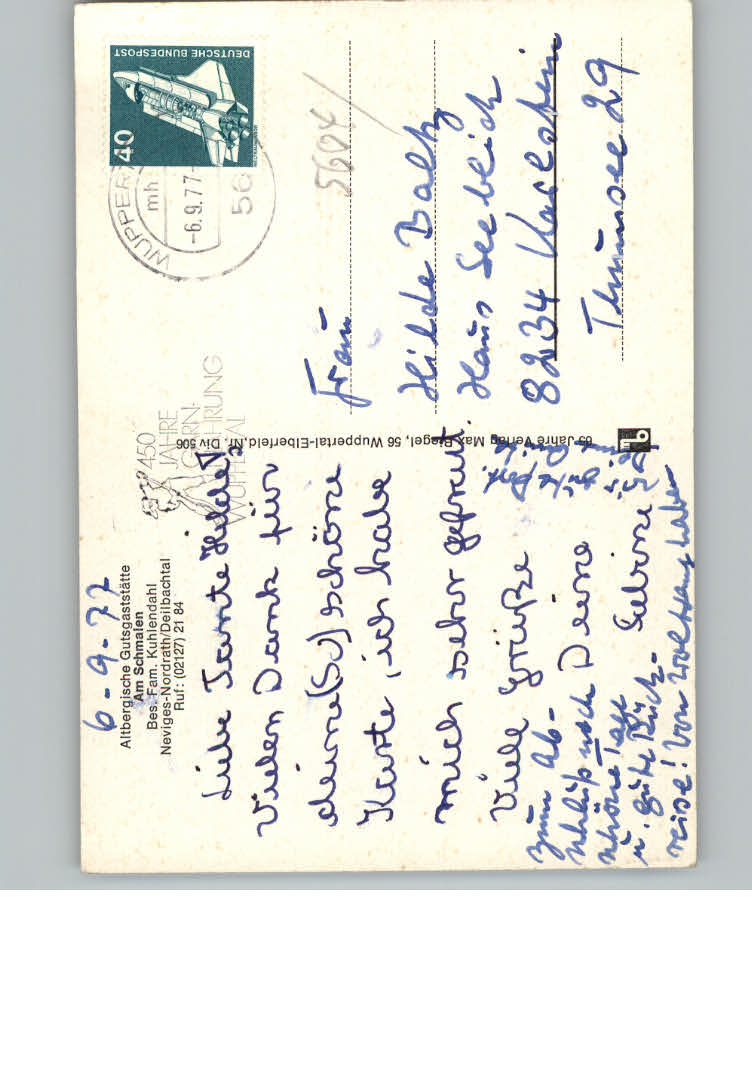 6-9-77
Altbergische Gutsgaststätte
Am Schmalen
Bes. Fam. Kuhlendahl
Neviges-Nordrath/Deilbachtal
Ruf: (02127) 21 84
Liebe Tante Hilde!
Vielen Dank für
deine (Sc) schöne
Karte, ich habe
mich sehr gefreut.
Viele Grüße
Deine
Sabine
zum Ab-
schluß noch
schöne Tage
u. gute Rück-
reise! Von
65 Jahre Verlag Max Biegel, 56 Wuppertal-Elberfeld, Nr. Div 506
450
JAHRE
GARN-
NAHRUNG
WUPPERTAL
DEUTSCHE BUNDESPOST
40
WUPPER
mh
-6.9.77
56
5604
Frau
Hilde Baltz
Haus Seeblick
8234 Karlstein
Thumsee 29